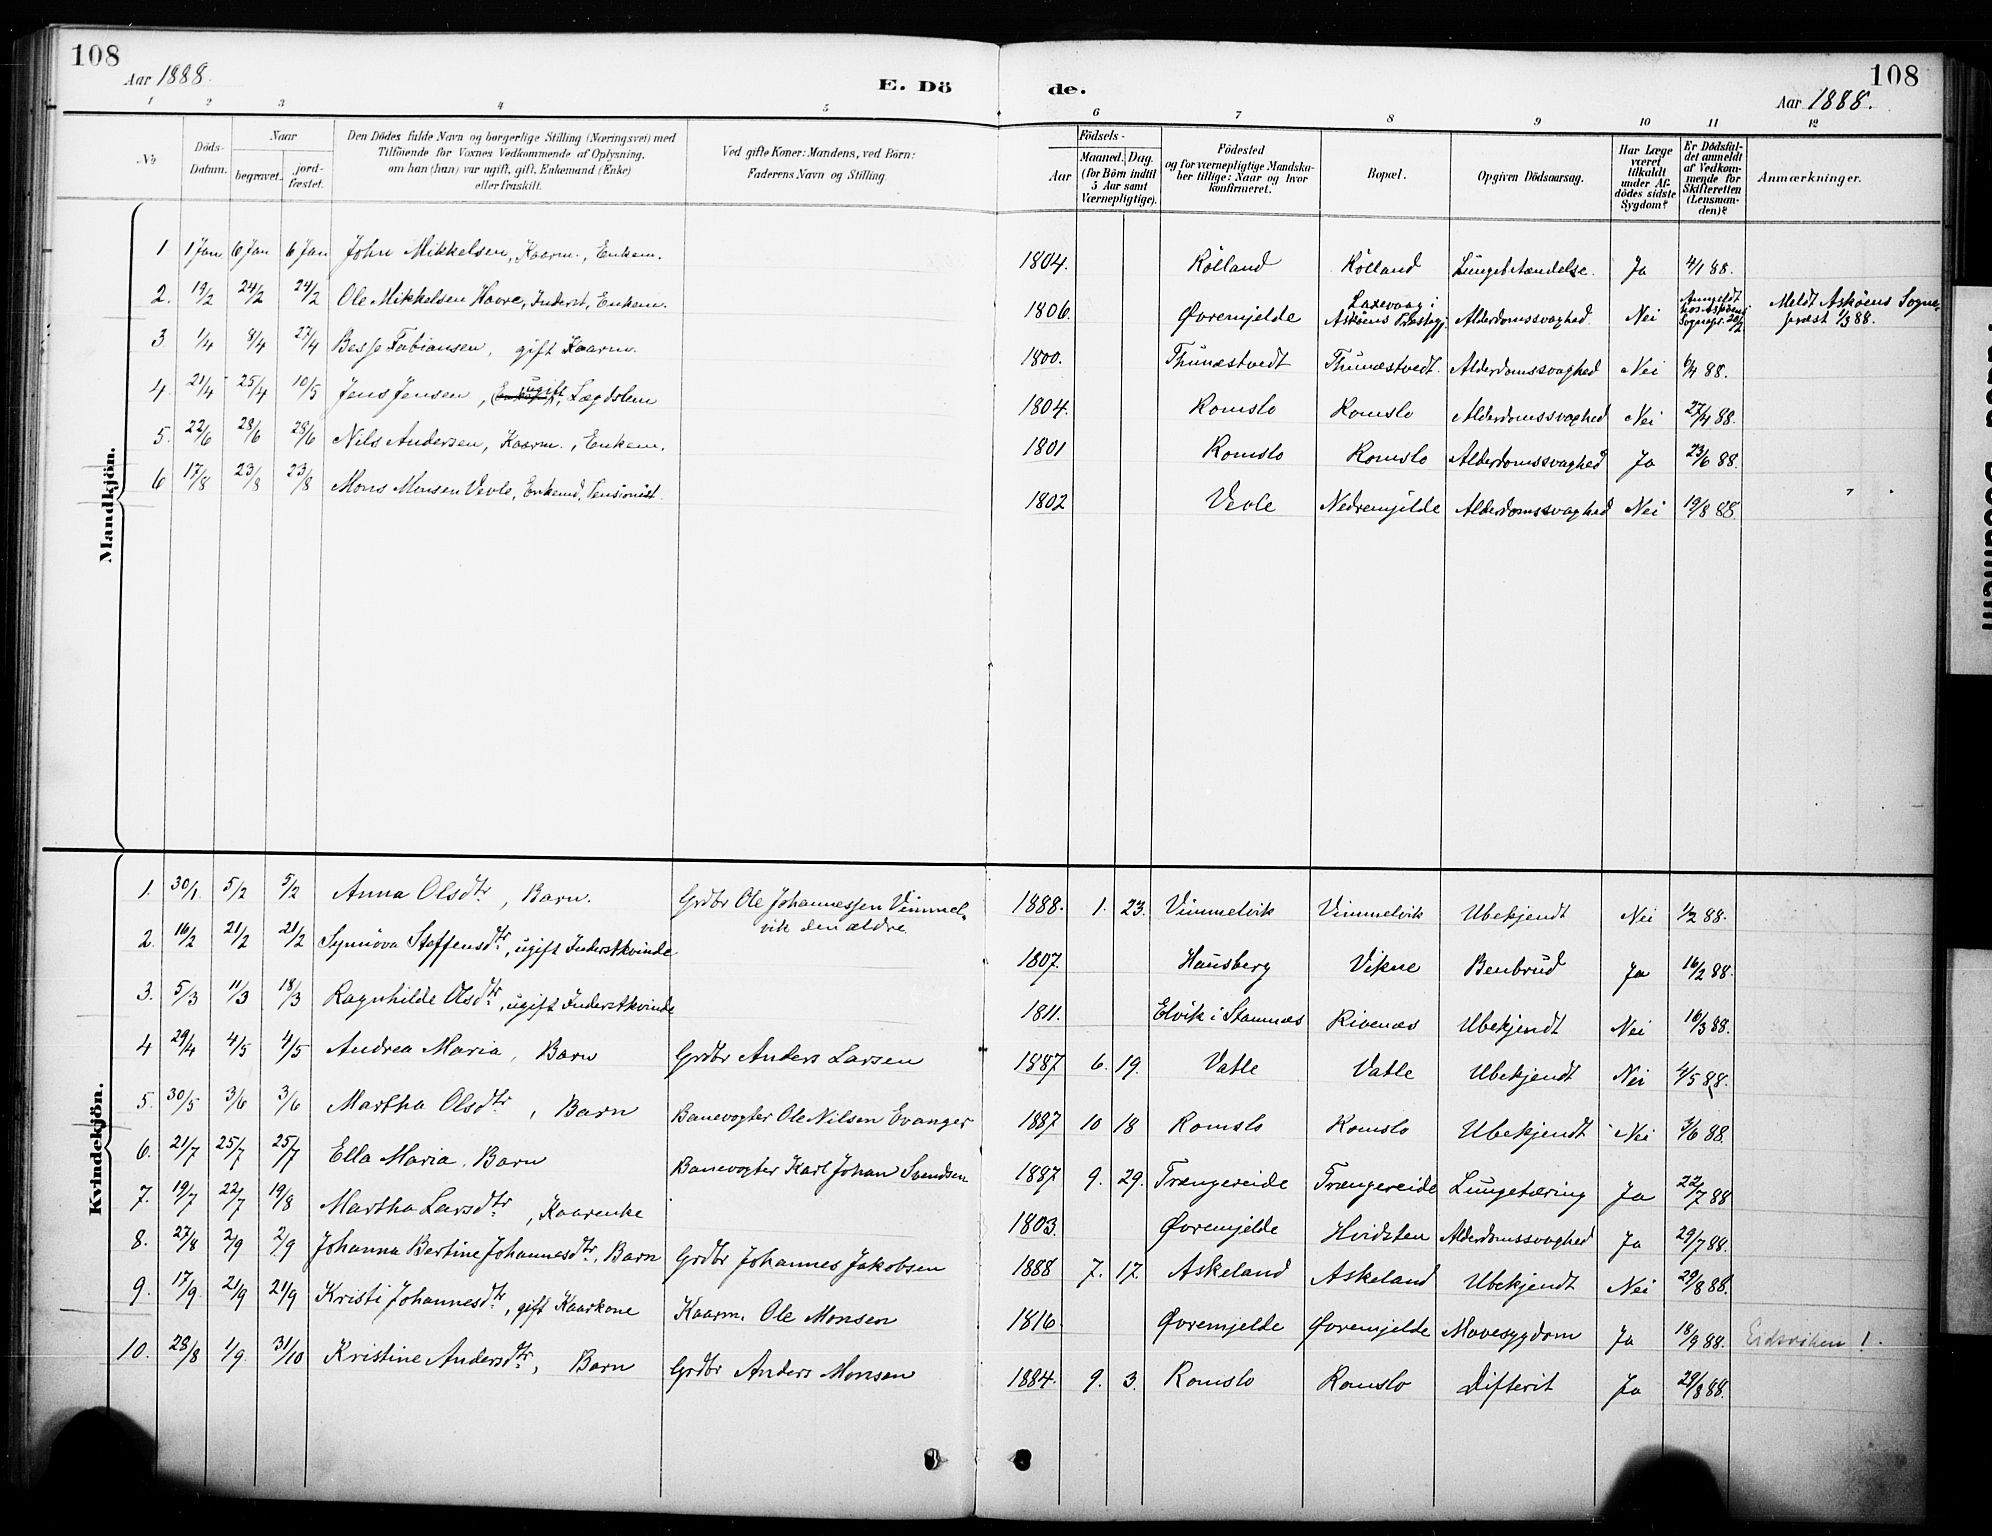 108
Aar 1888.
E. Dö
de.
108
Aar 1888.
1 2 3 4 5 6 7 8 9 10 11 12
№
Döds-Datum.
Naar
begravet.
jord-fæstet.
Den Dödes fulde Navn og borgerlige Stilling (Næringsvei) med
Tilföiende for Voxnes Vedkommende af Oplysning,
om han (hun) var ugift, gift, Enkemand (Enke)
eller fraskilt.
Ved gifte Koner: Mandens, ved Börn:
Faderens Navn og Stilling.
Födsels-
Aar
Maaned. Dag.
(for Börn indtil
5 Aar samt
Værnepligtige).
Födested
og for værnepligtige Mandska-
ber tillige: Naar og hvor
konfirmeret.
Bopæl.
Opgiven Dödsaarsag.
Har Læge
været
tilkaldt
under Af-
dödes sidste
Sygdom?
Er Dödsfal-
det anmeldt
af Vedkom-
mende for
Skifteretten
(Lensman-
den)?
Anmærkninger.
Mandkjön.
1 1 Jan 6 Jan 6 Jan John Mikkelsen, Kaarm., Enkem. 1804. Rölland Rölland Lungebetændelse. Ja 4/1 88.
2. 19/2 24/2 24/2 Ole Mikkelsen Havre, Inderst, Enkem. 1806. Øvremjelde Laxevaag i Askøens Præstegj. Alderdomssvaghed Nei Anmeldt hos Askøens Sognepr. 20/2 Meldt Askøens Sogne-
præst 1/3 88.
3 1/4 8/4 27/4 Besse Fabiansen, gift Kaarm. 1800. Thunestvedt Thunestvedt Alderdomssvaghed Nei 6/4 88.
4. 21/4 25/4 10/5 Jens Jensen, ugift, Lægdslem 1804. Romslo Romslo Alderdomssvaghed Nei 27/4 88.
5. 22/6 28/6 28/6 Nils Andersen, Kaarm., Enkem. 1801 Romslo Romslo Alderdomssvaghed Ja 23/6 88.
6 17/8 23/8 23/8 Mons Monsen Vevle, Enkemd, Pensionist. 1802 Vevle Nedremjelde Alderdomssvaghed Nei 19/8 88
Kvindekjön.
1. 30/1 5/2 5/2 Anna Olsdtr, Barn. Grdbr Ole Johannessen Vimmel-
vik den ældre. 1888. 1. 23. Vimmelvik Vimmelvik Ubekjendt Nei 1/2 88.
2. 16/2 21/2 21/2 Synnöva Steffensdtr, ugift Inderstkvinde 1807. Hausberg Vikne Benbrud Ja 16/2 88.
3. 5/3 11/3 18/3 Ragnhilde Olsdtr, ugift Inderstkvinde 1811. Elvik i Stamnæs Rivenæs Ubekjendt Nei 16/3 88.
4 29/4 4/5 4/5 Andrea Maria, Barn Grdbr Anders Larsen 1887 6. 19. Vatle Vatle Ubekjendt Nei 4/5 88.
5. 30/5 3/6 3/6 Martha Olsdtr, Barn Banevogter Ole Nilsen Evanger 1887 10 18 Romslo Romslo Ubekjendt Nei 3/6 88.
6. 21/7 25/7 25/7 Ella Maria. Barn Banevogter Karl Johan Svendsen 1887 9. 29. Trængereide Trængereide Lungetæring Ja 22/7 88
7. 19/7 22/7 19/8 Martha Larsdtr, Kaarenke 1803. Øvremjelde Hvidsten Alderdomssvaghed Ja 29/7 88.
8. 27/8 2/9 2/9 Johanna Bertine Johannesdtr, Barn Grdbr Johannes Jakobsen 1888 7. 17. Askeland Askeland Ubekjendt Nei 29/8 88.
9. 17/9. 21/9 21/9 Kristi Johannesdtr, gift Kaarkone Kaarm. Ole Monsen 1816. Øvremjelde Øvremjelde Mavesygdom Ja 18/9 88.
10. 28/8 1/9. 31/10 Kristine Andersdtr, Barn Grdbr Anders Monsen 1884. 9. 3. Romslo Romslo Difterit Ja 29/8 88.